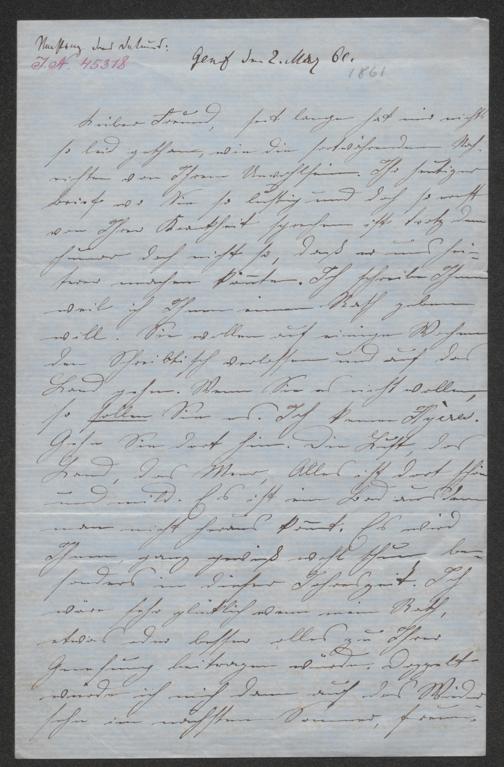 Genf den 2. May 60.
I.N. 45318
1861
Lieber Freund, seit lange hat mir nichts
so leid gethan, wie die fortwährenden Nach-
richten von Ihrem Unwohlsein. Ihr heutiger
Brief wo Sie so lustig und doch so
von Ihrer Krankheit sprechen ist trotz dem
Humor doch nicht so, daß er uns hei-
terer machen könnte. Ich schreibe Ihnen
weil ich Ihnen einen Rath geben
will. Sie wollen auf einige Wochen
den Schreibtisch verlassen und auf das
Land gehen. Wenn Sie es nicht wollen,
so sollen Sie es. Ich kenne Hyères.
Gehen Sie dort hin. Die Luft, das
Land, das Meer, Alles ist dort schön
und mild. Es ist ein Bad aus dem
man nicht heraus kömt. Es wird
Ihnen ganz gewiß wohl thun be-
sonders in dieser Jahreszeit. Ich
wäre sehr glücklich wenn mein Rath,
etwas oder besser alles zu Ihrer
Genesung beitragen würde. Doppelt
würde ich mich dann auch des Wieder
sehn im nächsten Sommer, freun.